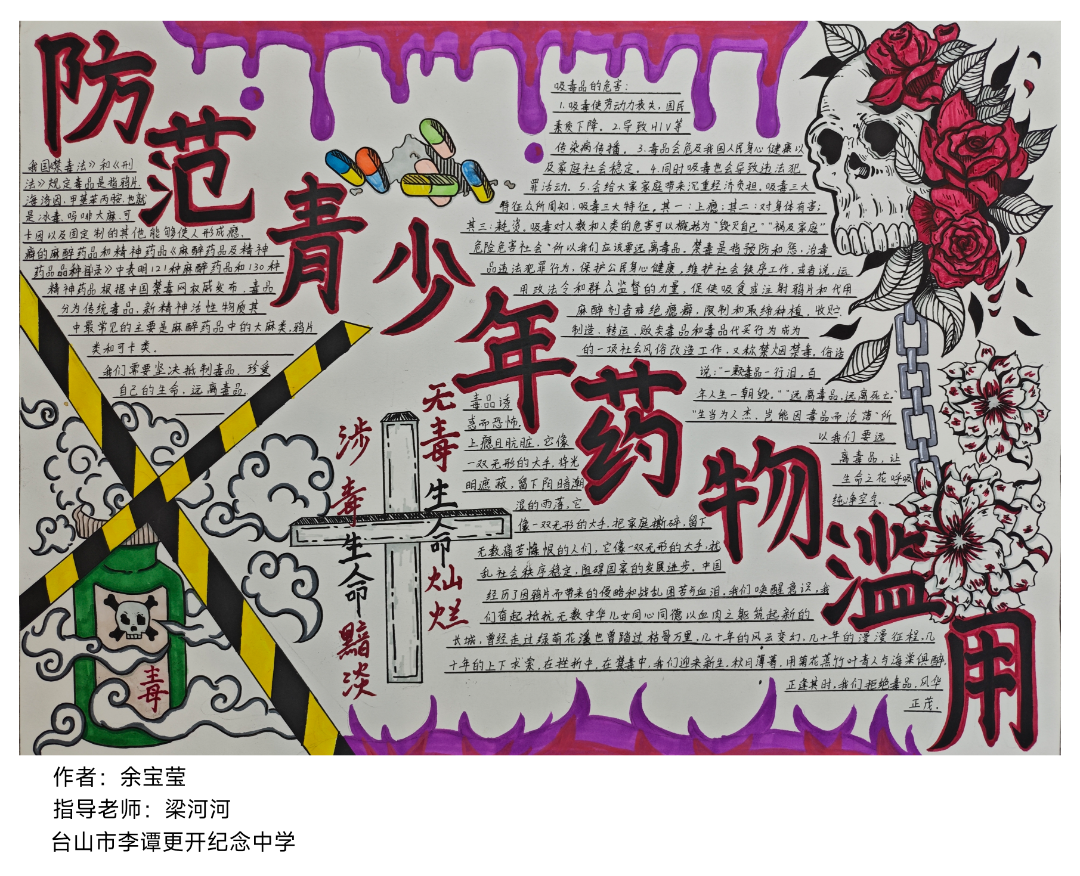 防范青少年药物滥用
我国《禁毒法》和《刑
法》规定毒品是指鸦片
海洛因、甲基苯丙胺、也就
是冰毒、吗啡、大麻、可
卡因以及国定制的其他能够使人形成瘾
癖的麻醉药品和精神药品《麻醉药品及精神
药品品种目录》中表明121种麻醉药品和130种
精神药品根据中国禁毒网权威发布，毒品
分为传统毒品，新精神活性物质其
中最常见的主要是麻醉药品中的大麻类，鸦片
类和可卡类。
我们需要坚决抵制毒品，珍爱
自己的生命，远离毒品
吸毒品的危害：
1.吸毒使劳动力丧失，国民
素质下降。2.导致HIV等
传染病传播。3.毒品会危及我国人民身心健康以
及家庭社会稳定。4.同时吸毒也会导致违法犯
罪活动。5.会给大家家庭带来沉重经济负担，吸毒三大
群征众所周知，吸毒三大特征，其一：上瘾；其二：对身体有害；
其三：耗资，吸毒对人数和人类的危害可以概括为“毁灭自己”“祸及家庭”
危险危害社会”所以我们应该要远离毒品。禁毒是指预防和惩治毒
品违法犯罪行为，保护公民身心健康，维护社会秩序工作，或者说，运
用政法令和群众监督的力量，促使吸食或注射鸦片和代用
麻醉剂者戒绝瘾癖，限制和取缔种植、收贮
制造、转运、贩卖毒品和毒品代买行为成为
的一项社会风俗改造工作，又称禁烟禁毒，俗话
说：“一颗毒品一行泪，百
年人生一朝毁。”“远离毒品，远离死亡。”
“生当为人杰，岂能因毒品而沦落”所
以我们要远
离毒品，让
生命之花呼吸
纯净空气。
毒品诱
惑而恐怖，
上瘾且肮脏，它像
一双无形的大手，将光
明遮蔽，留下阴暗潮
湿的雨落，它
像一双无形的大手，把家庭撕碎，留下
无数痛苦悔恨的人们，它像一双无形的大手，扰
乱社会秩序稳定，阻碍国家的发展进步。中国
经历了因鸦片而带来的侵略和战乱困苦与血泪，我们唤醒意识，我
们奋起抵抗无数中华儿女同心同德以血肉之躯筑起新的
长城，曾经走过绿荫花溪也曾踏过枯骨万里，几十年的风云变幻，几十年的漫漫征程，几
十年的上下求索，在挫折中，在禁毒中，我们迎来新生，秋月薄暮，用菊花蒸竹叶青人与海棠俱醉，
正逢其时，我们拒绝毒品，风华
正茂。
无毒生命灿烂
涉毒生命黯淡
毒
作者：余宝莹
指导老师：梁河河
台山市李谭更开纪念中学